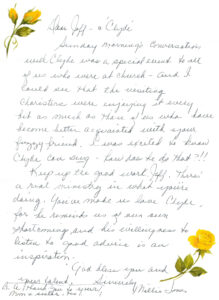 Dear Jeff - & "Clyde"
Sunday Morning's Conversation
with Clyde was a special event to all
of us who were at church - and I
could see that the visiting
Choristers were enjoying it every
bit as much as those of us who have
become better acquainted with your
fuzzy friend. I was excited to know
Clyde can sing - how does he do that?!!
Keep up the good work Jeff. There's
a real ministry in what you're
doing. You've made us love Clyde -
for he reminds us of our own
shortcomings and his willingness to
listen to good advice is an
inspiration.
God bless you and
your talent, Sincerely
Millie Jones